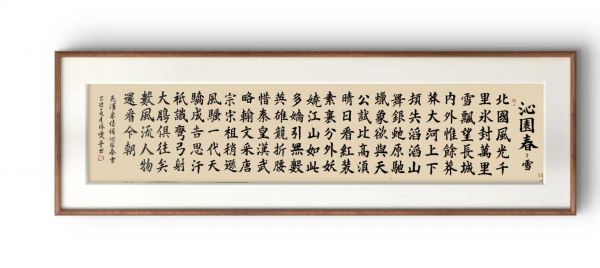 沁園春:雪
北國風光千
里氷封萬里
雪飄望長城
內外惟餘莽
莽大河上下
頓失滔滔山
舞銀蛇原馳
蠟象欲與天
公試比高湏
晴日看紅裝
素裹分外妖
嬈江山如此
多嬌引無數
英雄競折腰
惜秦皇漢武
略輸文采唐
宗宋祖稍遜
風騷一代天
驕成吉思汗
祇識彎弓射
大鵰俱往矣
數風流人物
還看今朝
毛澤東詩詞沁園春雪